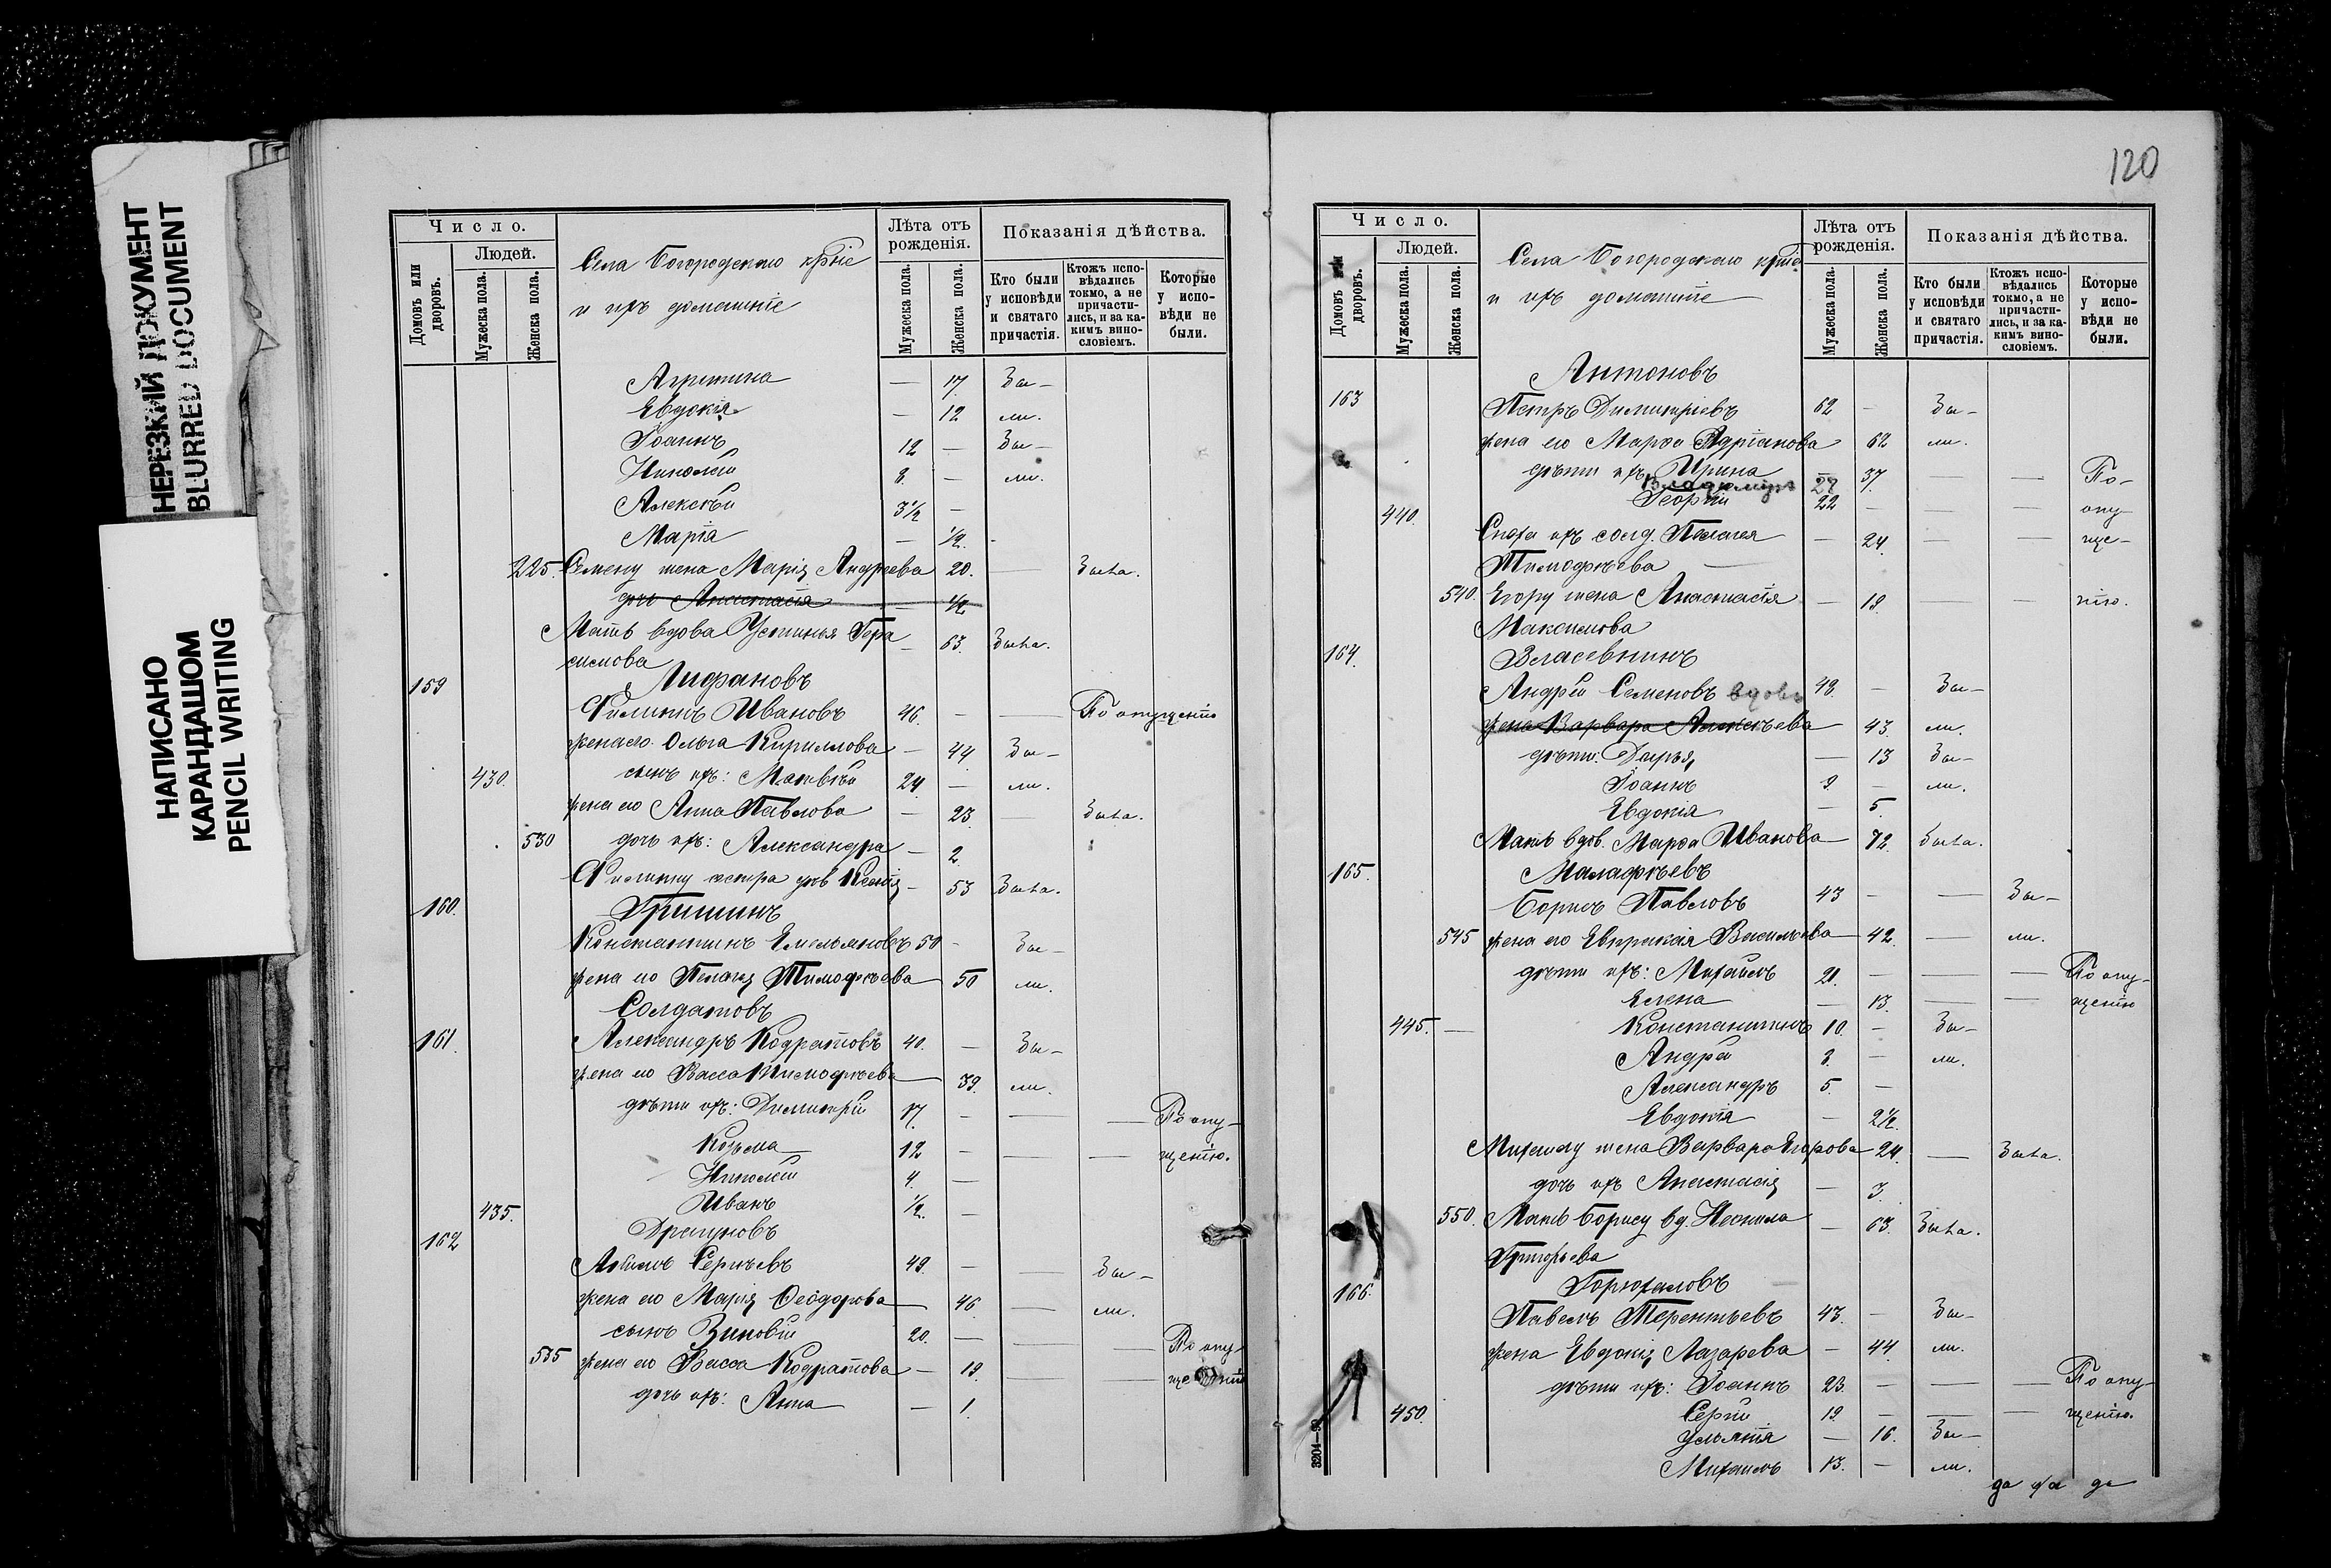 НЕРЕЗКИЙ ДОКУМЕНТ
BLURRED DOCUMENT
НАПИСАНО
КАРАНДАШОМ
PENCIL WRITING
Число. Лѣта отъ рожденія. Показанія дѣйства.
Домовъ или дворовъ. Людей. Мужеска пола. Женска пола.
Села Богородскаго крѣст
и ихъ домашніе
Мужеска пола. Женска пола. Кто были у исповѣди и святаго причастія. Ктожъ исповѣдались токмо, а не причастились, и за какимъ винословіемъ. Которые у исповѣди не были.
Агрипина — 17. Бы-
Евдокія — 12 ли.
Іоаннъ 12 — Бы-
Николай 8. — ли.
Алексѣй 3½ —
Марія — ½.
225. Семену жена Марія Андреева 20. Была.
дочь Анастасія — ½
Мать вдова Устинья Гера — 63. Была.
симова
159 Лифановъ
Филиппъ Ивановъ 46. — — По опущенію
жена его Ольга Кириллова — 44 Бы-
430. сынъ ихъ: Матвѣй 24. — ли.
жена его Анна Павлова — 23. — была.
530 дочь ихъ: Александра — 2.
Филиппу сестра — 53 Была.
160. Гришинъ
Константинъ Емельяновъ 50 - Бы-
жена его Пелагія Тимофѣева 50 ли.
Солдатовъ
161. Александръ Кодратовъ 40. — Бы-
жена его Васса Тимофѣева 39. ли.
дѣти ихъ: Димитрій 17. — — — По опу-
Козьма 12 — — — щенію.
Николай 4. —
435. Иванъ ½. —
162 Драгуновъ
Сергѣевъ 49. — — Бы-
жена его Марія Ѳеодорова 46. — ли.
сынъ Зиновій 20. — — — По опу-
535 жена его Васса Кодратова — 19. — — щенію
дочь ихъ: Анна — 1.
120
Число. Лѣта отъ рожденія. Показанія дѣйства.
Домовъ или дворовъ. Людей. Мужеска пола. Женска пола.
Села Богородскаго крѣст
и ихъ домашніе
Мужеска пола. Женска пола. Кто были у исповѣди и святаго причастія. Ктожъ исповѣдались токмо, а не причастились, и за какимъ винословіемъ. Которые у исповѣди не были.
Антоновъ
163 Петръ Димитріевъ 62 — Бы-
жена его Марѳа Адріанова 62 ли.
дѣти ихъ Ирина — 37. — — По-
Владиміръ 27
440. Георгій 22 — — — опу
Сноха ихъ солд. Пелагея — 24. — — ще-
Тимофѣева —
540. Егору жена Анастасія — 19. — — нію.
Максимова
164. Власевнинъ
Андрей Семеновъ вдовъ 48. — Бы-
жена Варвара Алексѣева 43. ли.
дѣти: Дарья — 13 Бы-
Іоаннъ 9. — ли.
Евдокія — 5.
Мать вдов. Марѳа Иванова 72. была.
165. Малафѣевъ
Борисъ Павловъ 43 — — Бы-
545 жена его Евпраксія Васильева 42. — ли.
дѣти ихъ: Михаилъ 21. — — — По опу-
Елена — 13. — — щенію
445. — Константинъ 10. — Бы-
Андрей 8. — ли.
Александръ 5. —
Евдокія — 2½.
Михаилу жена Варвара Егорова 24. — Была.
дочь ихъ Анастасія — 3.
550. Мать Борису вд. Неонила — 63. Была.
Григорьева
166. Горюхаловъ
Павелъ Терентьевъ 43. — Бы-
жена Евдокія Лазарева — 44 ли.
дѣти ихъ: Іоаннъ 23. — — — По опу-
450. Сергій 19. — — — щенію.
Ульянія — 16. Бы-
Михаилъ 13. — ли.
3204—92